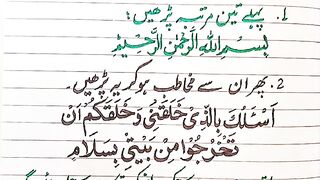 1. پہلے تین مرتبہ پڑھیں؛
بِسْمِ اللهِ الرَّحْمٰنِ الرَّحِيْمِ
2. پھر ان سے مخاطب ہو کر یہ پڑھیں۔
اَسْئَلُكَ بِالَّذِىْ خَلَقَنِىْ وَخَلَقَكُمْ اَنْ
تَخْرُجُوْا مِنْ بَيْتِىْ بِسَلَامٍ